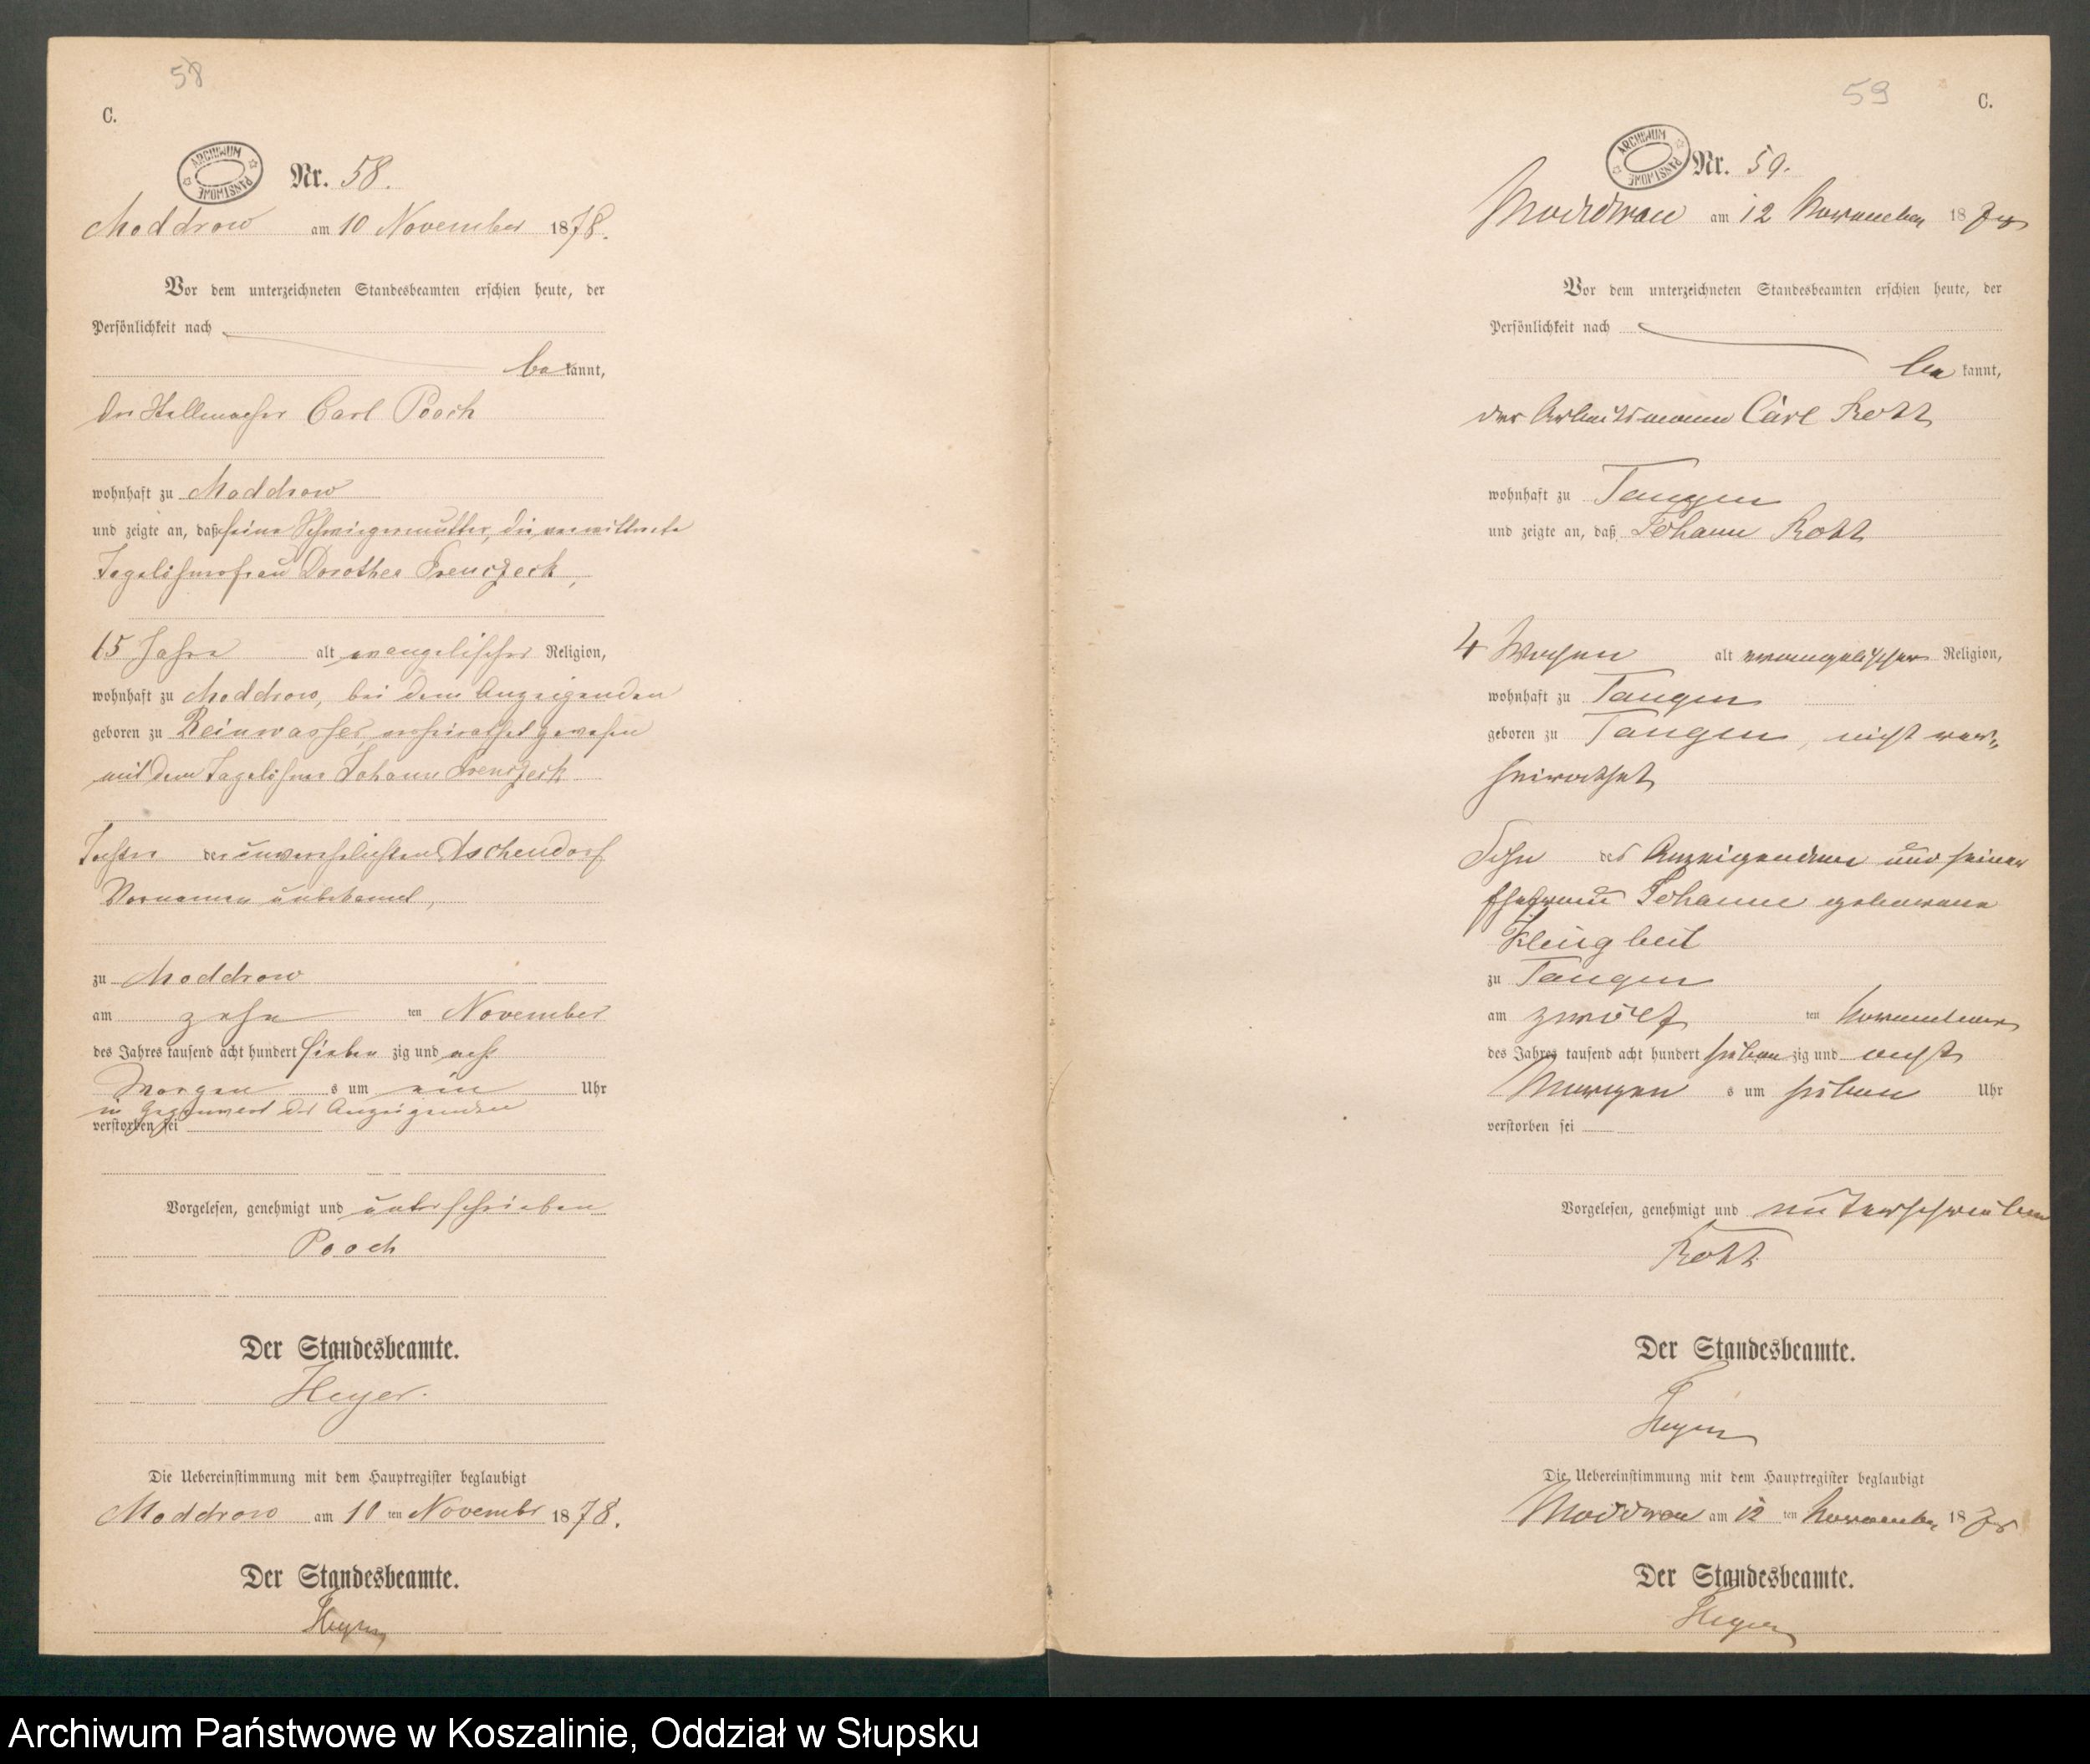 58
C.
ARCHIWUM PAŃSTWOWE
Nr. 58.
Moddrow am 10 November 1878.
Vor dem unterzeichneten Standesbeamten erschien heute, der
Persönlichkeit nach
bekannt,
der Stellmacher Carl Pooch
wohnhaft zu Moddrow
und zeigte an, daß seine Schwiegermutter, die verwittwete
Tagelöhnerfrau Dorothea
alt evangelischer Religion,
wohnhaft zu Moddrow, bei dem Anzeigenden
geboren zu Reinwasser, verheirathet gewesen
mit dem Tagelöhner Johann
Tochter der unverehelichten Aschendorf
Vornamen unbekannt,
zu Moddrow
am zehn ten November
des Jahres tausend acht hundert sieben zig und acht
Morgen s um ein Uhr
in Gegenwart des Anzeigenden
verstorben sei
Vorgelesen, genehmigt und unterschrieben
Pooch
Der Standesbeamte.
Heyer.
Die Uebereinstimmung mit dem Hauptregister beglaubigt
Moddrow am 10 ten Novembr 1878.
Der Standesbeamte.
Heyer
59
C.
ARCHIWUM PAŃSTWOWE
Nr. 59.
Moddrow am 12 November 1878
Vor dem unterzeichneten Standesbeamten erschien heute, der
Persönlichkeit nach
bekannt,
der Arbeitsmann Carl Rott
wohnhaft zu Tangen
und zeigte an, daß Johann Rott
4 Wochen alt evangelischer Religion,
wohnhaft zu Tangen
geboren zu Tangen, nicht ver-
heirathet
Sohn des Anzeigenden und seiner
Ehefrau Johanne geborene
zu Tangen
am zwölf ten November
des Jahres tausend acht hundert sieben zig und acht
Morgen s um sieben Uhr
verstorben sei
Vorgelesen, genehmigt und unterschrieben
Rott
Der Standesbeamte.
Heyer
Die Uebereinstimmung mit dem Hauptregister beglaubigt
Moddrow am 12 ten November 1878
Der Standesbeamte.
Heyer
Archiwum Państwowe w Koszalinie, Oddział w Słupsku